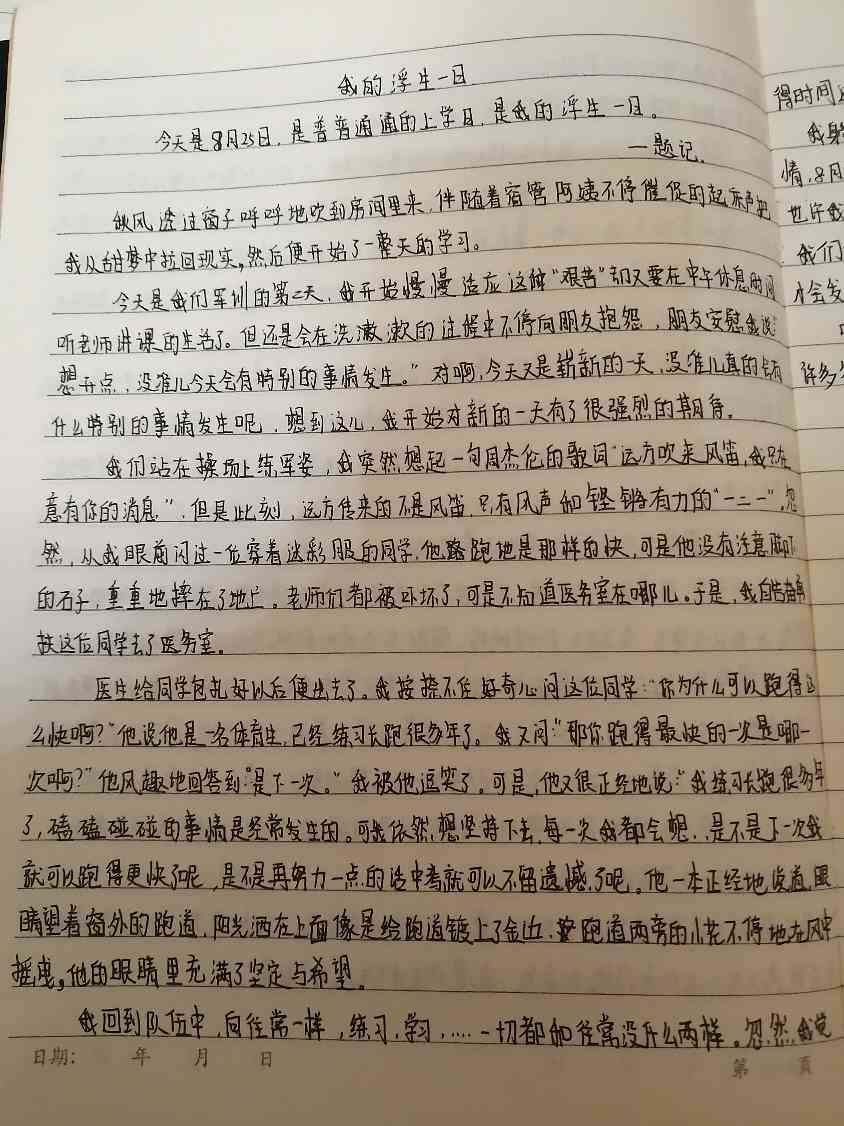 我的浮生一日
今天是8月25日，是普普通通的上学日，是我的浮生一日。
一题记.
秋风透过窗子呼呼地吹到房间里来，伴随着宿管阿姨不停催促的起床声把
我从甜梦中拉回现实，然后便开始了一整天的学习。
今天是我们军训的第2天，我开始慢慢适应这种“艰苦”却又要在中午休息时间
听老师讲课的生活了。但还是会在洗漱漱的过程中不停向朋友抱怨，朋友安慰我说：
想开点，没准儿今天会有特别的事情发生。”对啊，今天又是崭新的一天，没准儿真的会有
什么特别的事情发生呢，想到这儿，我开始对新的一天有了很强烈的期待。
我们站在操场上练军姿，我突然想起一句周杰伦的歌词“远方吹来风笛，我只在
意有你的消息”，但是此刻，远方传来的不是风笛，只有风声和铿锵有力的“一二一”，忽
然，从我眼前闪过一位穿着迷彩服的同学，他跑地是那样的快，可是他没有注意脚下
的石子，重重地摔在了地上。老师们都被吓坏了，可是不知道医务室在哪儿。于是，我自告奋勇
扶这位同学去了医务室。
医生给同学包扎好以后便出去了。我按捺不住好奇心问这位同学：“你为什么可以跑得这
么快啊？”他说他是一名体育生，已经练习长跑很多年了。我又问：“那你跑得最快的一次是哪一
次啊？”他风趣地回答到：“是下一次。”我被他逗笑了。可是，他又很正经地说：“我练习长跑很多年
了，磕磕碰碰的事情是经常发生的。可我依然想坚持下去，每一次我都会想，是不是下一次我
就可以跑得更快了呢，是不是再努力一点的话中考就可以不留遗憾了呢。他一本正经地说道，眼
睛望着窗外的跑道，阳光洒在上面像是给跑道镀上了金边，跑道两旁的小花不停地在风中
摇曳，他的眼睛里充满了坚定与希望。
我回到队伍中，向往常一样，练习，学习，……一切都和往常没什么两样。忽然，我觉
日期： 年 月 日
第 页
得时间
情，8月
也许我
我们
才会发
许多